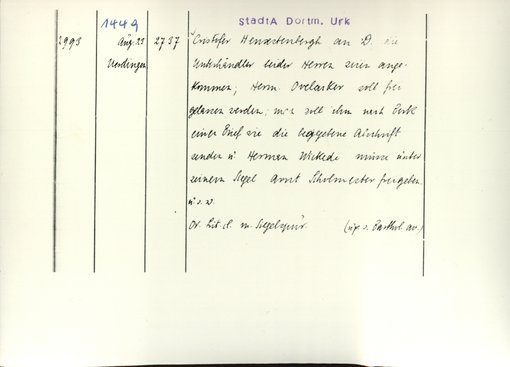 StadtA Dortm. Urk
1449
2993 Aug. 23 2737 Cristofer Henxstenbergh an D. die
Uerdingen Unterhändler beider Herren seien ange-
kommen; Herm. Ovelacker soll frei
gelassen werden; man soll ihm nach
einen Brief wie die begebene Abschrift
senden u Herman Wickede müsse unter
seinem Siegel Arnt Scholmester freigeben
u. s. w.
Or. lit. cl. m. Siegelspur.